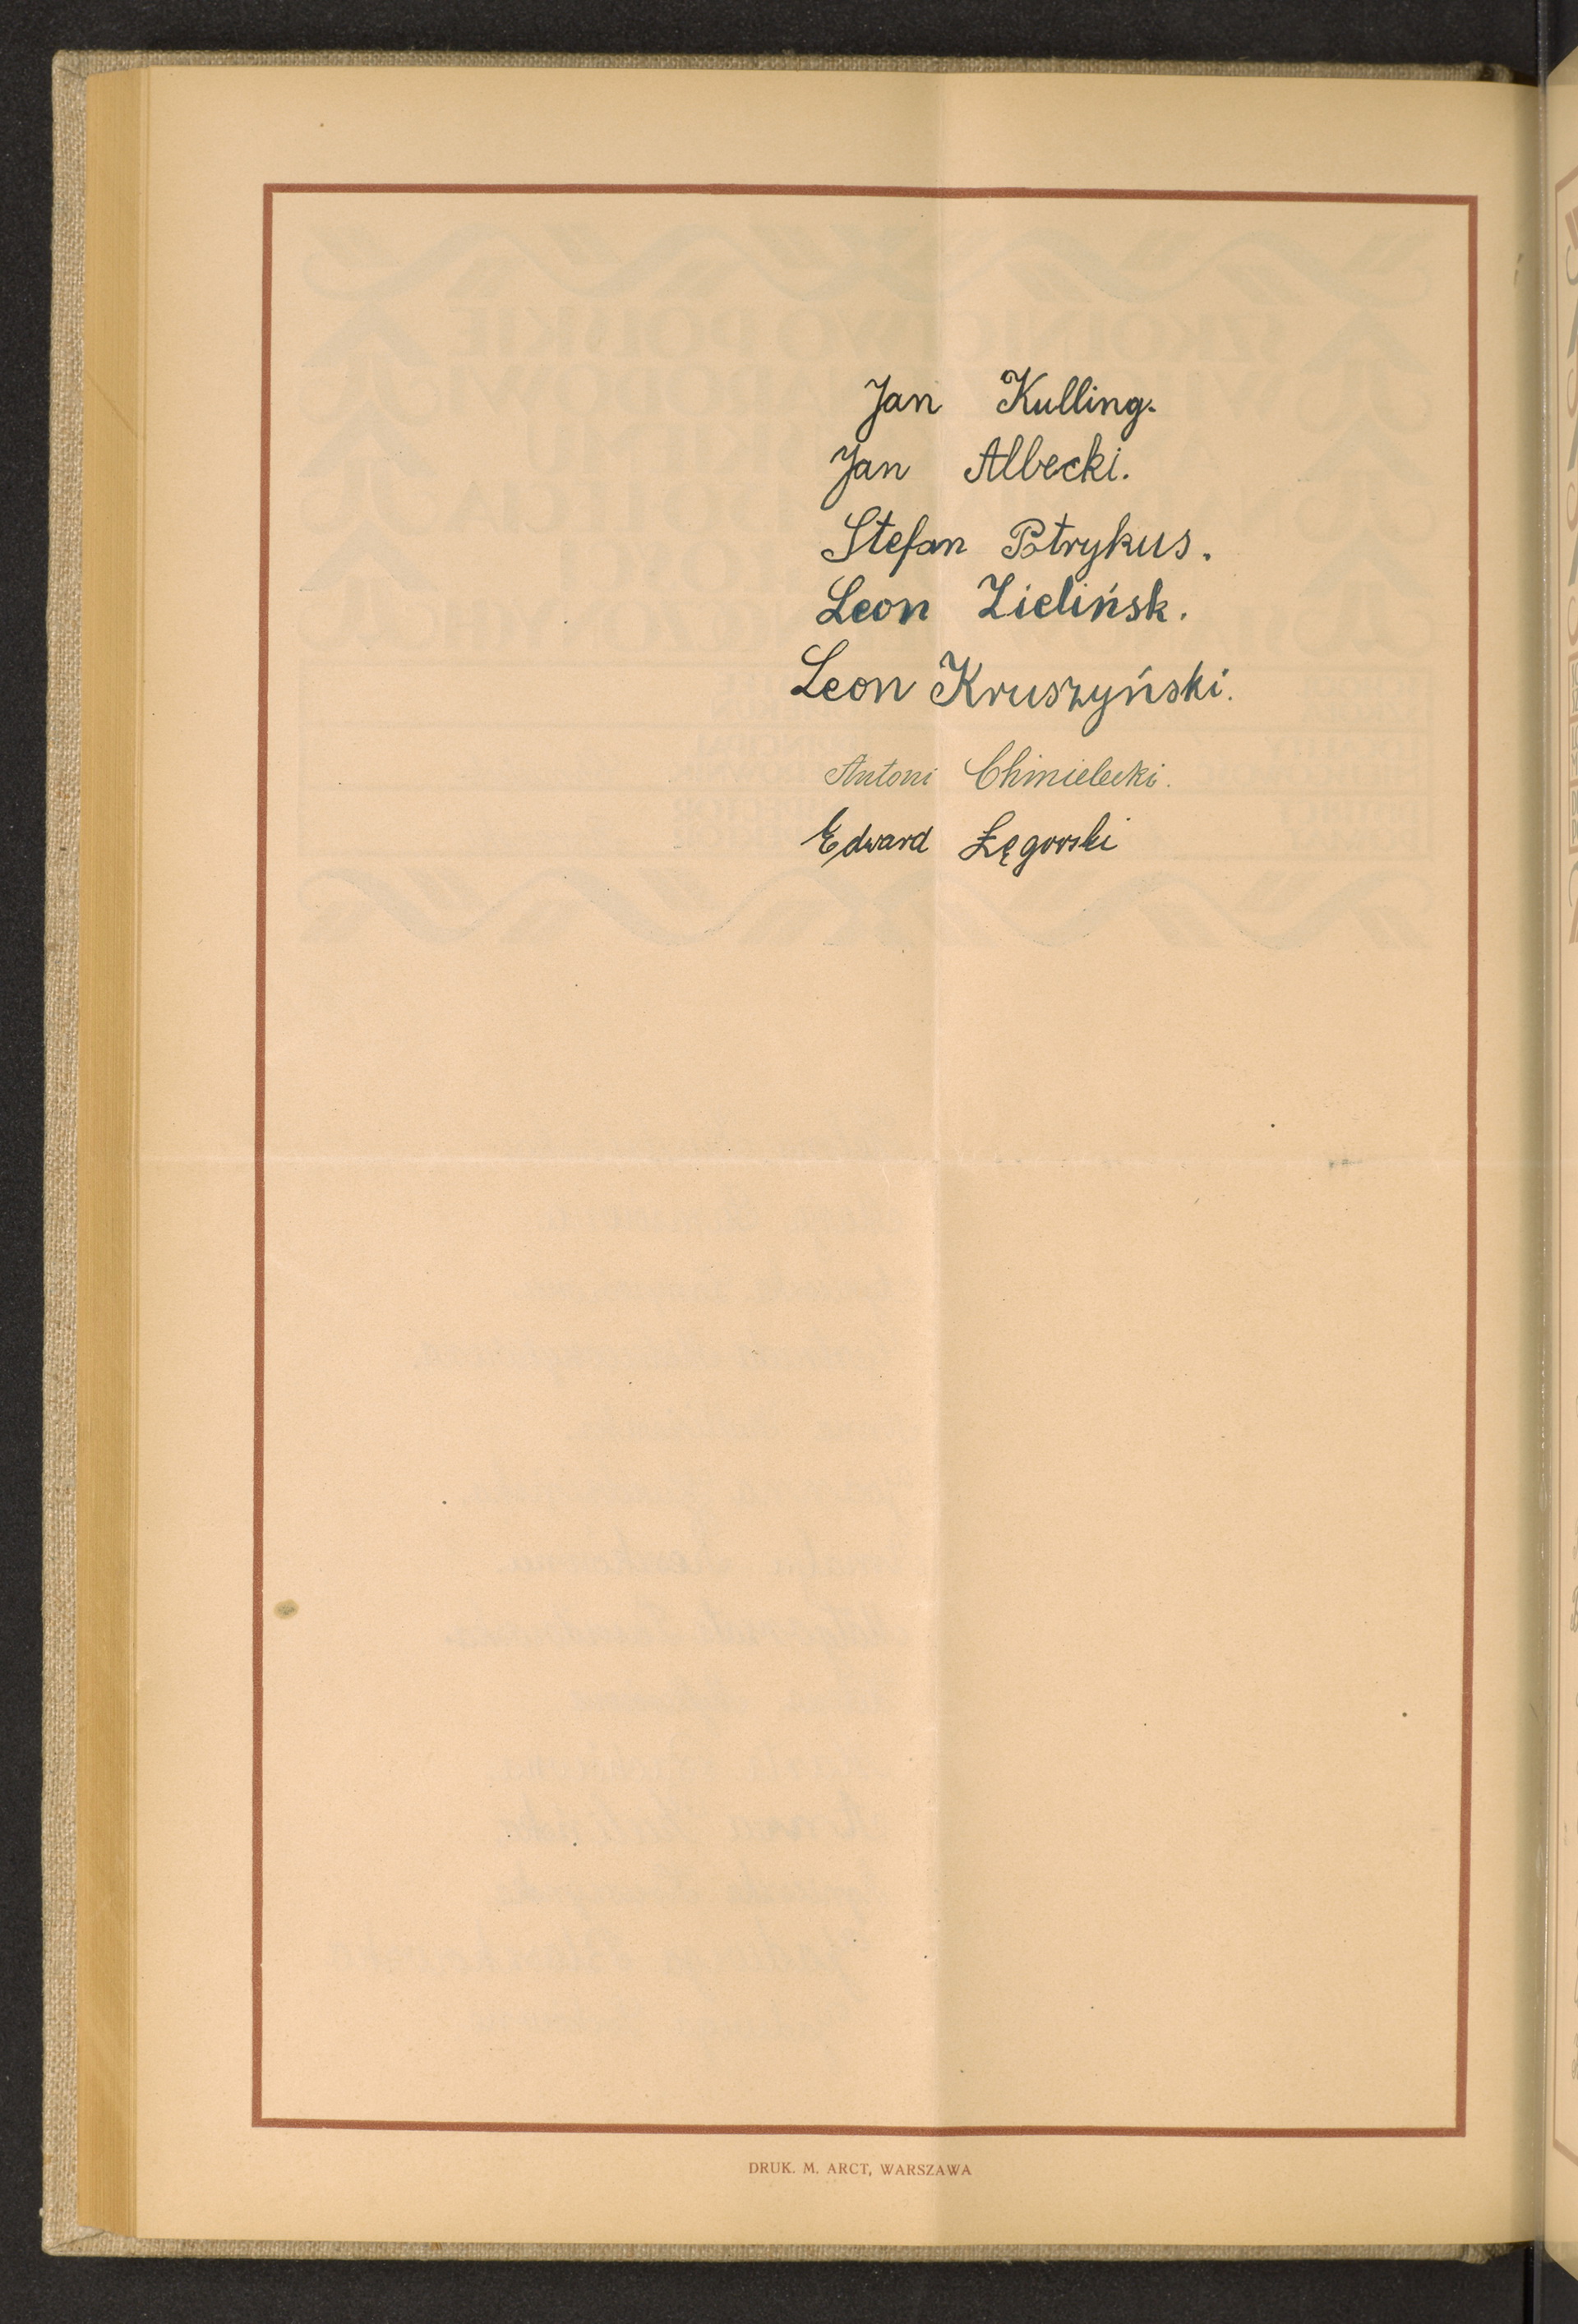 Jan Kulling.
Jan Albecki.
Stefan Potrykus.
Leon Zielińsk.
Leon Kruszyński.
Antoni Chmielecki.
Edward Łęgowski
DRUK. M. ARCT, WARSZAWA